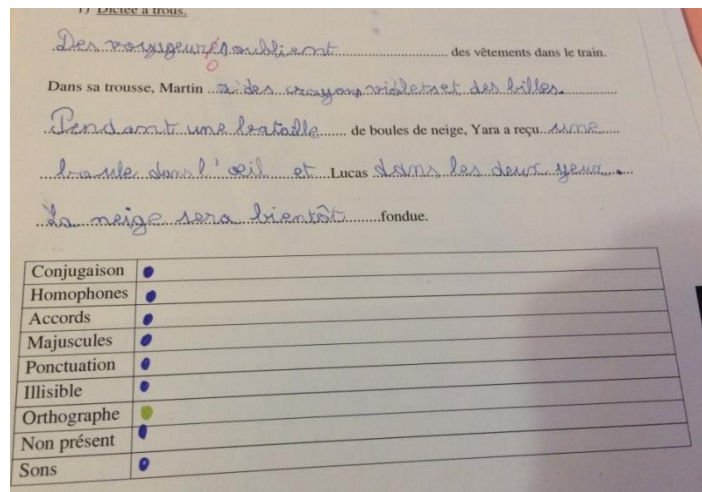 1) Dictée à trous.
Des voyageurs oublient des vêtements dans le train.
Dans sa trousse, Martin a des crayons violets et des billes.
Pendant une bataille de boules de neige, Yara a reçu une
boule dans l'œil et Lucas dans les deux yeux.
La neige sera bientôt fondue.
Conjugaison
Homophones
Accords
Majuscules
Ponctuation
Illisible
Orthographe
Non présent
Sons